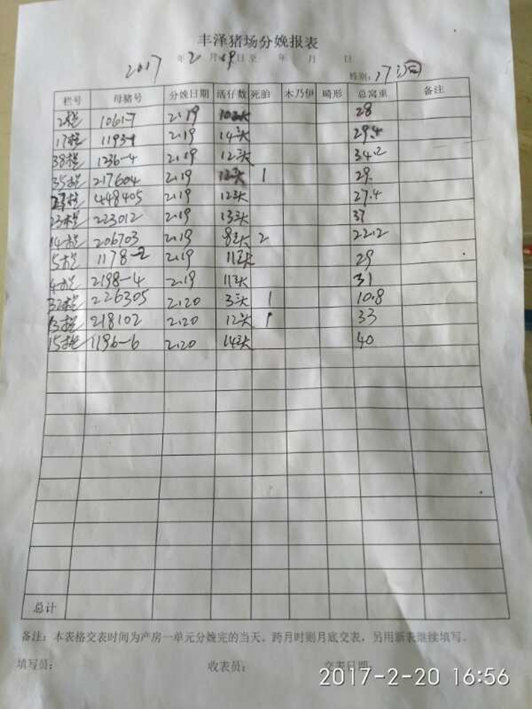 丰泽猪场分娩报表
2017 年 2 月 19 日至 年 月 日
性别: 17
栏号 母猪号 分娩日期 活仔数 死胎 木乃伊 畸形 总窝重 备注
2栏 1061-7 2.19 10头 28
17栏 1193-1 2.19 14头 29.4
38栏 1236-4 2.19 12头 34.2
35栏 217604 2.19 12头 1 29
27栏 448405 2.19 12头 27.4
23栏 223012 2.19 13头 37
14栏 206703 2.19 8头 2 22.2
5栏 1178-2 2.19 11头 29
4栏 2198-4 2.19 11头 31
32栏 226305 2.20 3头 1 10.8
13栏 218102 2.20 12头 1 33
15栏 1196-6 2.20 14头 40
总计
备注：本表格交表时间为产房一单元分娩完的当天。跨月时则月底交表，另用新表继续填写。
填写员: 收表员: 交表日期:
2017-2-20 16:56